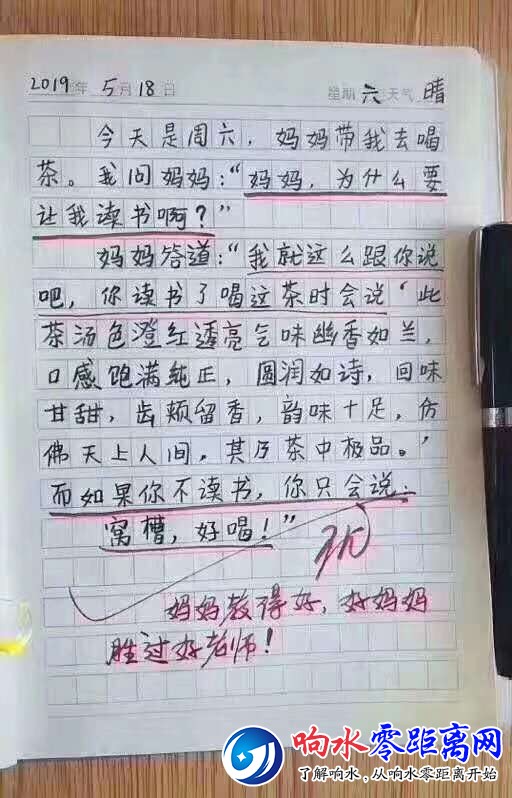 2019年 5月 18日 星期 六 天气 晴
今天是周六，妈妈带我去喝
茶。我问妈妈：“妈妈，为什么要
让我读书啊？”
妈妈答道：“我就这么跟你说
吧，你读书了喝这茶时会说‘此
茶汤色澄红透亮气味幽香如兰，
口感饱满纯正，圆润如诗，回味
甘甜，齿颊留香，韵味十足，仿
佛天上人间，其乃茶中极品。’
而如果你不读书，你只会说：
窝槽，好喝！”
优
妈妈教得好，好妈妈
胜过好老师！
响水零距离网
了解响水，从响水零距离开始